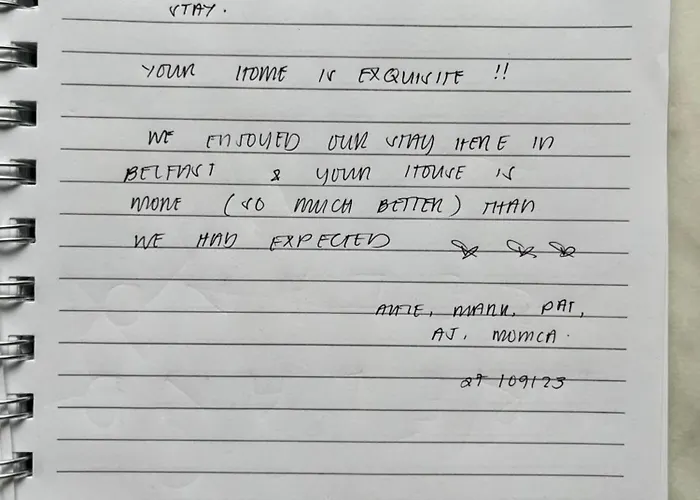 STAY.
YOUR HOME IS EXQUISITE !!
WE ENJOYED OUR STAY HERE IN
BELFAST & YOUR HOUSE IS
MORE (SO MUCH BETTER) THAN
WE HAD EXPECTED
MARK, PAT,
AJ,
27/09/23